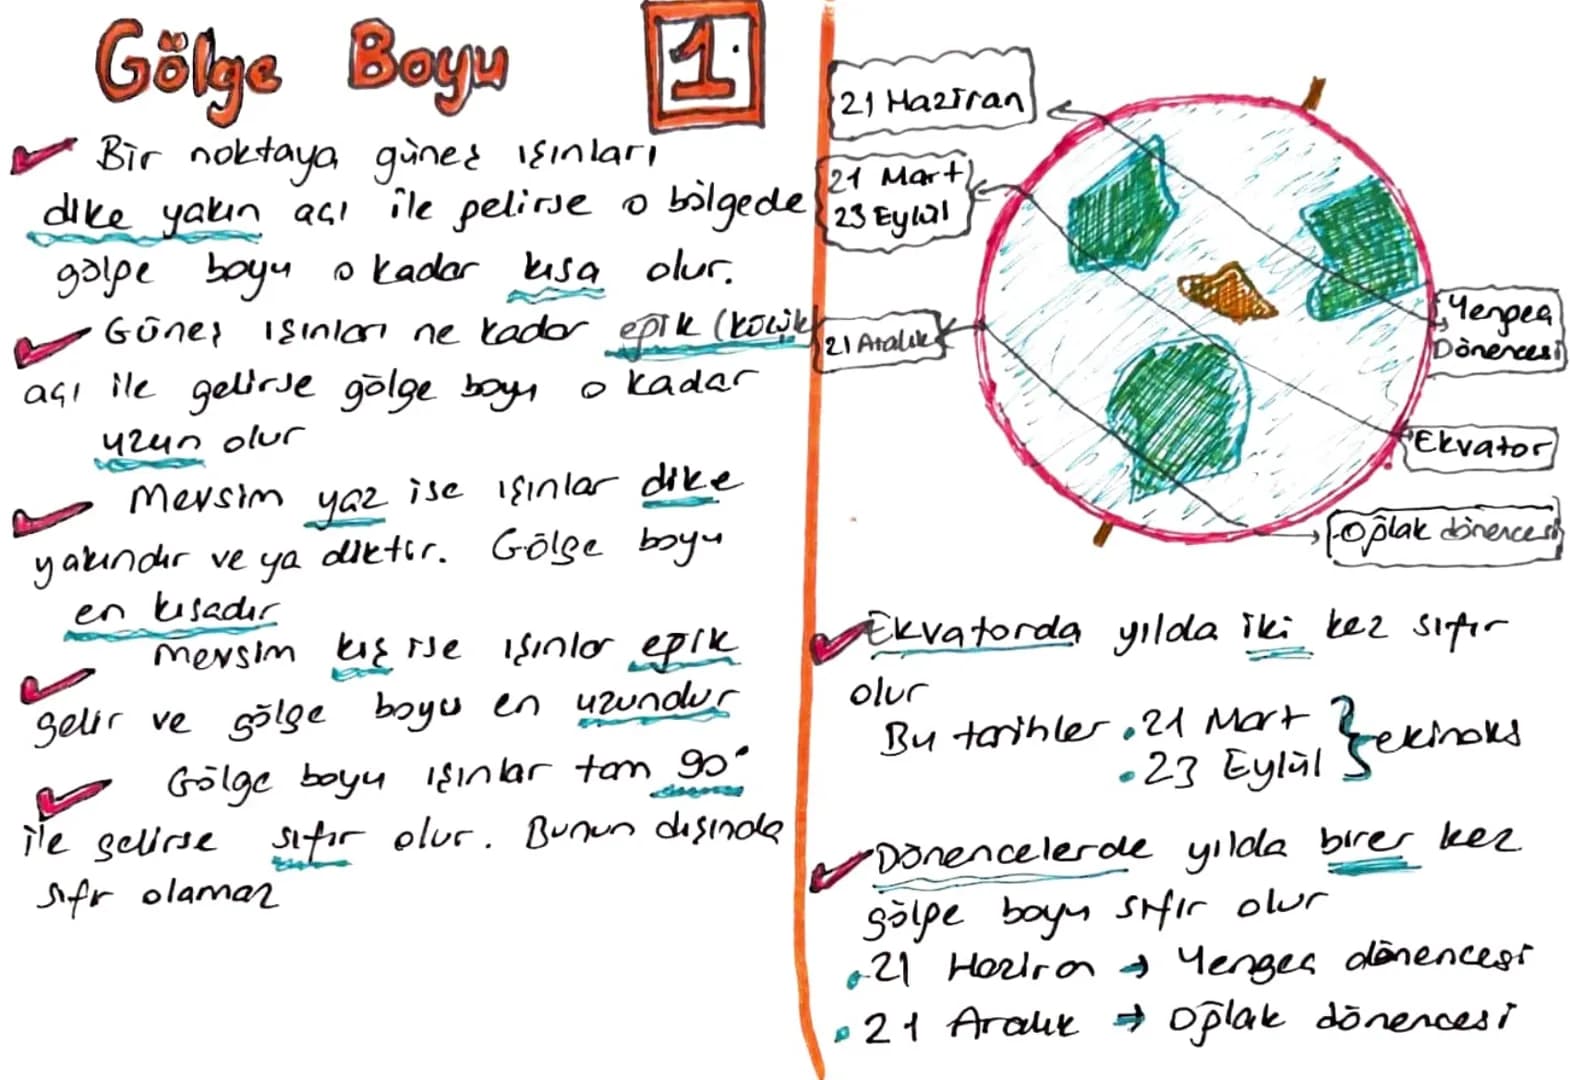 Gölge Boyu 1.
Bir noktaya güneş ışınları
dike yakın açı ile gelirse o bölgede
gölge boyu o kadar kısa olur.
Güneş ışınları ne kadar eğik (küçük
açı ile gelirse gölge boyu o kadar
uzun olur
Mevsim yaz ise ışınlar dike
yakındır ve ya diktir. Gölge boyu
en kısadır
Mevsim kış ise ışınlar eğik
gelir ve gölge boyu en uzundur
Gölge boyu ışınlar tam 90°
ile gelirse sıfır olur. Bunun dışında
sıfır olamaz
21 Haziran
21 Mart
23 Eylül
21 Aralık
Yengeç
Dönencesi
Ekvator
Oğlak dönencesi
Ekvatorda yılda iki kez sıfır
olur
Bu tarihler . 21 Mart } ekinoks
. 23 Eylül
Dönencelerde yılda birer kez
gölge boyu sıfır olur
. 21 Haziran → Yengeç dönencesi
. 21 Aralık → Oğlak dönencesi